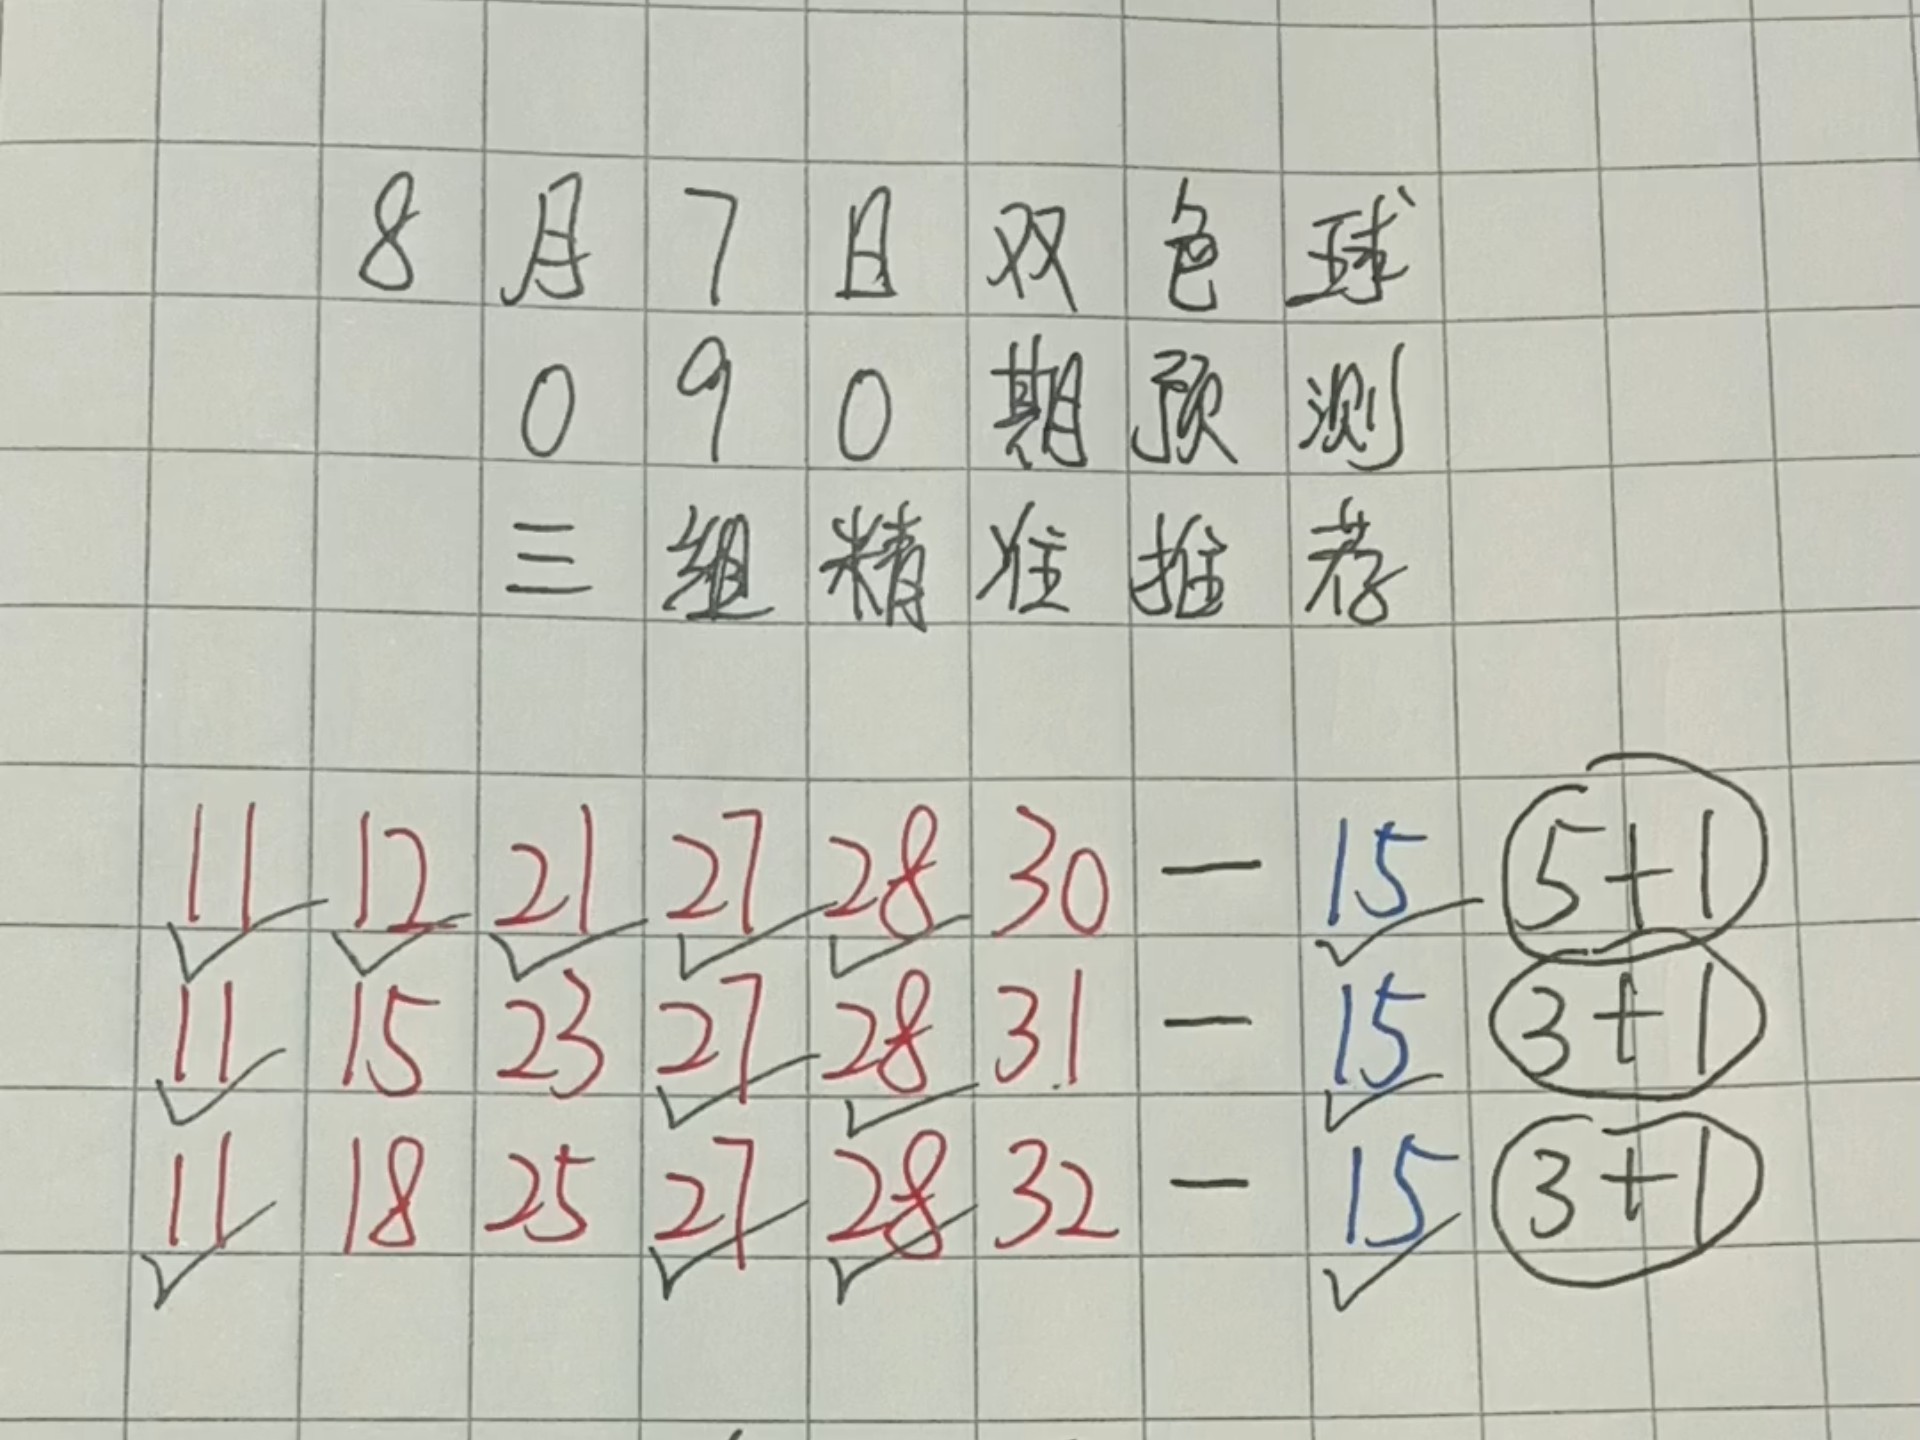 8月7日双色球
090期预测
三组精准推荐
11 12 21 27 28 30 — 15 5+1
11 15 23 27 28 31 — 15 3+1
11 18 25 27 28 32 — 15 3+1